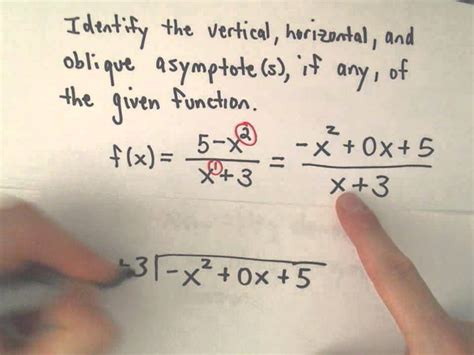 Identify the vertical, horizontal, and
oblique asymptote(s), if any, of
the given function.
f(x) = 5-x² / x¹+3 = -x²+0x+5 / x+3
3 -x²+0x+5